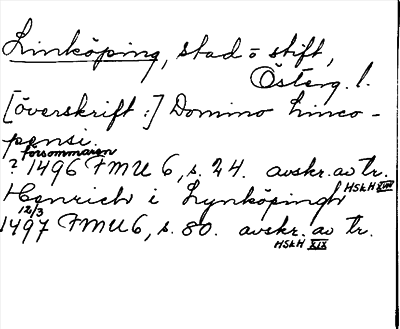 Linköping, stad o stift,
Österg. l.
[överskrift:] Domino Linco-
pensi.
försommaren
? 1496 FMU 6, s. 24. avskr. av tr.
HSkH XVIII
Henrich i Lynköpingh
12/3
1497 FMU 6, s. 80. avskr. av tr.
HSkH XIX